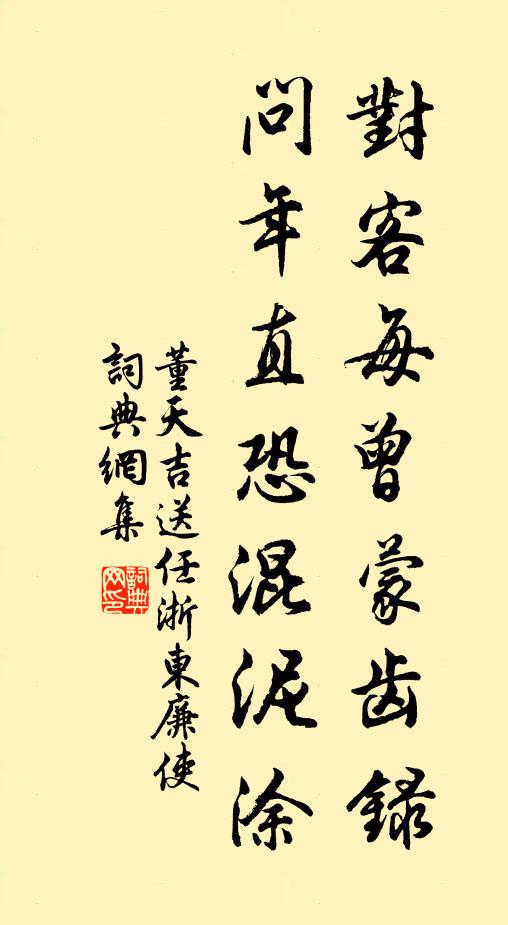 對客每曾蒙齿録
問年直恐混泥涂
董天吉送任浙東廉使
詞典網集
詞典網印